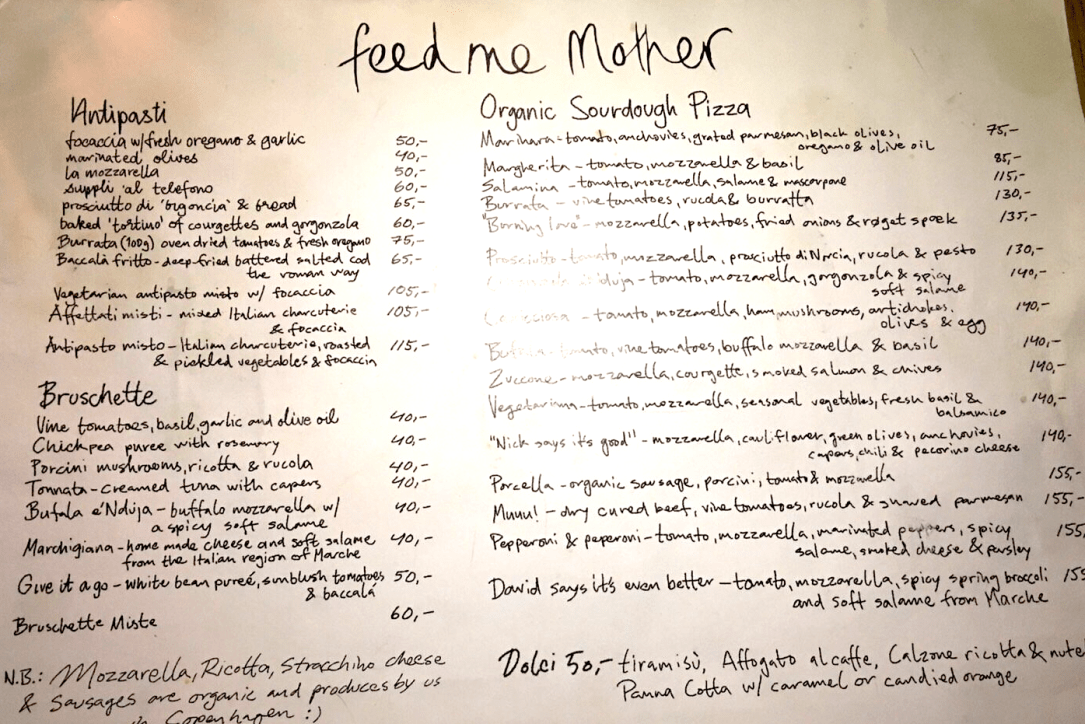 feed me Mother
Antipasti
focaccia w/fresh oregano & garlic 50,-
marinated olives 40,-
la mozzarella 50,-
supplì 'al telefono 60,-
prosciutto di 'bigoncia' & bread 65,-
baked 'tortino' of courgettes and gorgonzola 60,-
Burrata (100g) oven dried tomatoes & fresh oregano 75,-
Baccalà fritto - deep-fried battered salted cod 65,-
the roman way
Vegetarian antipasto misto w/ focaccia 105,-
Affettati misti - mixed Italian charcuterie 105,-
& focaccia
Antipasto misto - Italian charcuterie, roasted 115,-
& pickled vegetables & focaccia
Bruschette
Vine tomatoes, basil, garlic and olive oil 40,-
Chickpea puree with rosemary 40,-
Porcini mushrooms, ricotta & rucola 40,-
Tonnata - creamed tuna with capers 40,-
Bufala e'Nduja - buffalo mozzarella w/ 40,-
a spicy soft salame
Marchigiana - home made cheese and soft salame 40,-
from the Italian region of Marche
Give it a go - white bean pureé, sunblush tomatoes 50,-
& baccalá
Bruschette Miste 60,-
N.B.: Mozzarella, Ricotta, Stracchino cheese
& Sausages are organic and produces by us
Copenhagen :)
Organic Sourdough Pizza
Marinara - tomato, anchovies, grated parmesan, black olives, 75,-
oregano & olive oil
Margherita - tomato, mozzarella & basil 85,-
Salamina - tomato, mozzarella, salame & mascarpone 115,-
Burrata - vine tomatoes, rucola & burratta 130,-
"Borning love" - mozzarella, potatoes, fried onions & røget spæk 135,-
Prosciutto - tomato, mozzarella, prosciutto di Norcia, rucola & pesto 130,-
'nduja - tomato, mozzarella, gorgonzola & spicy 140,-
soft salame
- tomato, mozzarella, ham, mushrooms, artichokes, 140,-
olives & egg
Bufala - tomato, vine tomatoes, buffalo mozzarella & basil 140,-
Zuccone - mozzarella, courgette, smoked salmon & chives 140,-
Vegetariana - tomato, mozzarella, seasonal vegetables, fresh basil & 140,-
balsamico
"Nick says it's good" - mozzarella, cauliflower, green olives, anchovies, 140,-
capers, chili & pecorino cheese
Porcella - organic sausage, porcini, tomato & mozzarella 155,-
Muuu! - dry cured beef, vine tomatoes, rucola & shaved parmesan 155,-
Pepperoni & peperoni - tomato, mozzarella, marinated peppers, spicy 155,
salame, smoked cheese & parsley
David says it's even better - tomato, mozzarella, spicy spring broccoli 155
and soft salame from Marche
Dolci 50,- tiramisù, Affogato al caffe, Calzone ricotta & nute
Panna Cotta w/ caramel or candied orange